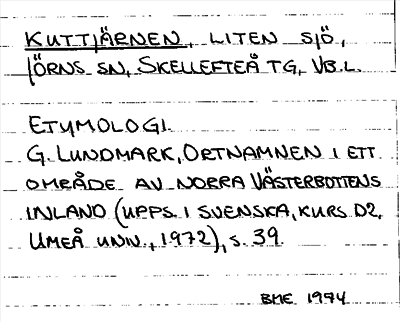 KUTTJÄRNEN, LITEN SJÖ,
JÖRNS SN, SKELLEFTEÅ TG, VB.L.
ETYMOLOGI.
G. LUNDMARK, ORTNAMNEN I ETT
OMRÅDE AV NORRA VÄSTERBOTTENS
INLAND (UPPS. I SVENSKA, KURS D2,
UMEÅ UNIV., 1972), S. 39.
BME 1974